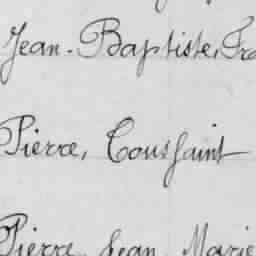 Jean-Baptiste, Fra
Pierre, Toussaint
Pierre Jean Marie